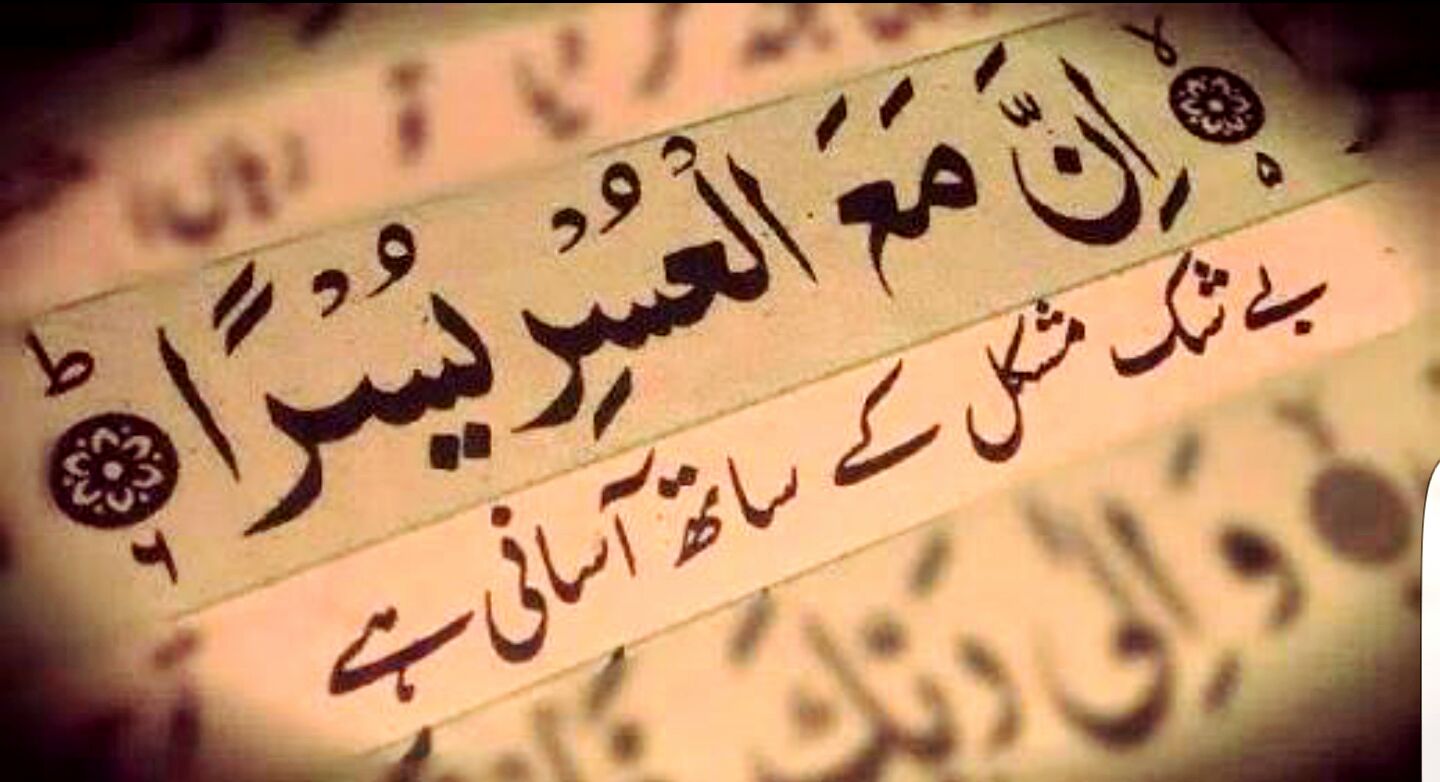 اِنَّ مَعَ الْعُسْرِ يُسْرًا ؕ ۶
بے شک مشکل کے ساتھ آسانی ہے
وَاِلٰی رَبِّكَ